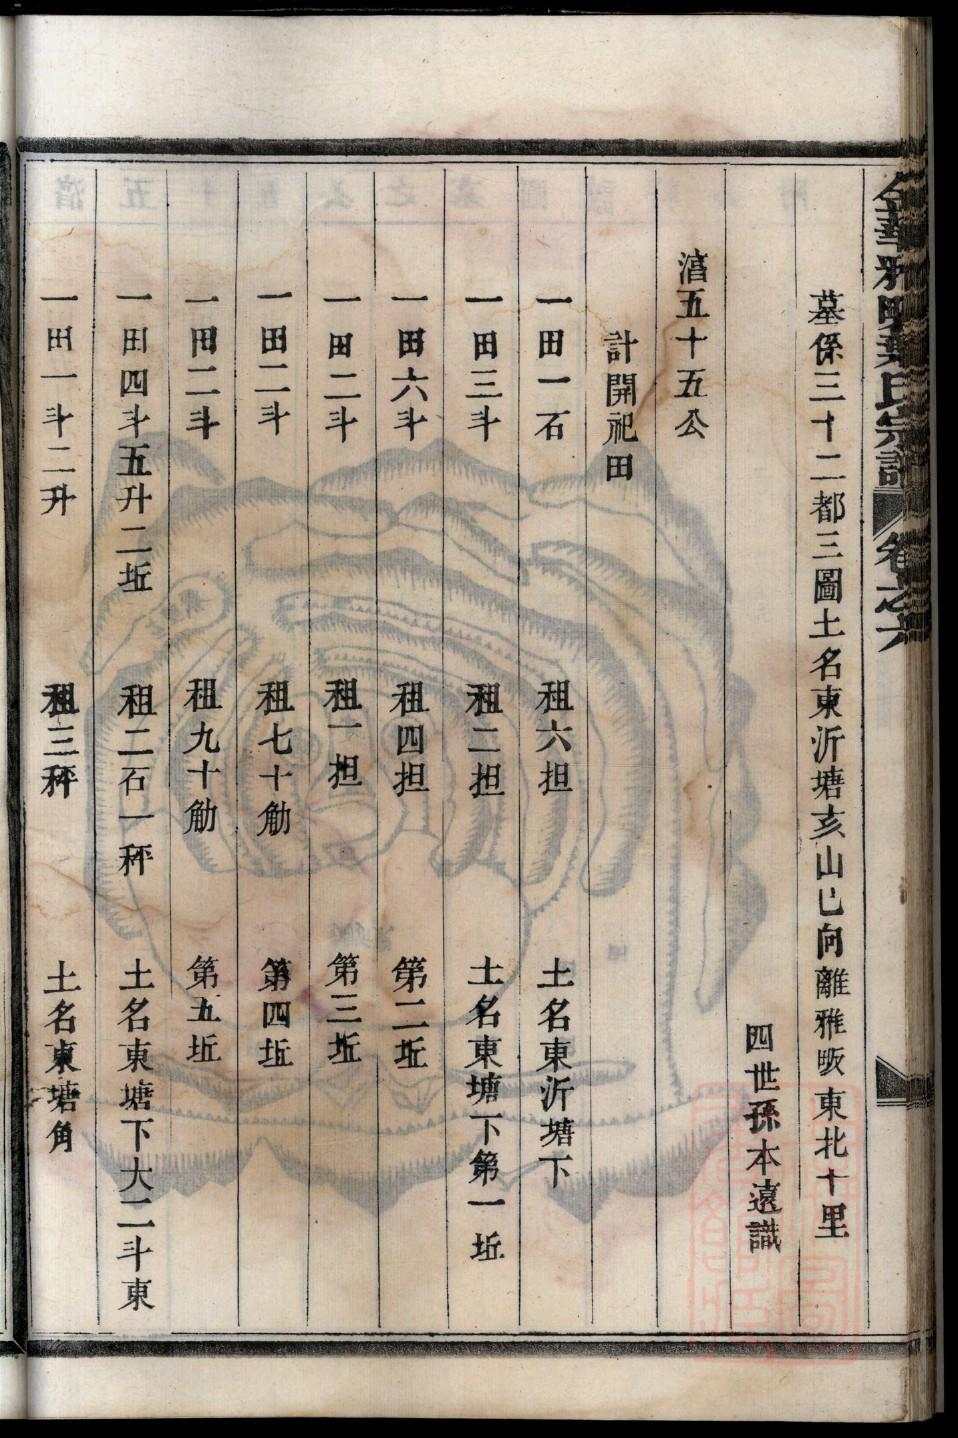 金華雅畈葉氏宗譜 卷之六
墓係三十二都三圖土名東沂塘亥山巳向離雅畈東北十里
四世孫本遠識
湻五十五公
計開祀田
一田一石 租六担 土名東沂塘下
一田三斗 租二担 土名東塘下第一坵
一田六斗 租四担 第二坵
一田二斗 租一担 第三坵
一田二斗 租七十觔 第四坵
一田二斗 租九十觔 第五坵
一田四斗五升二坵 租二石一秤 土名東塘下大二斗東
一田一斗二升 租三秤 土名東塘角